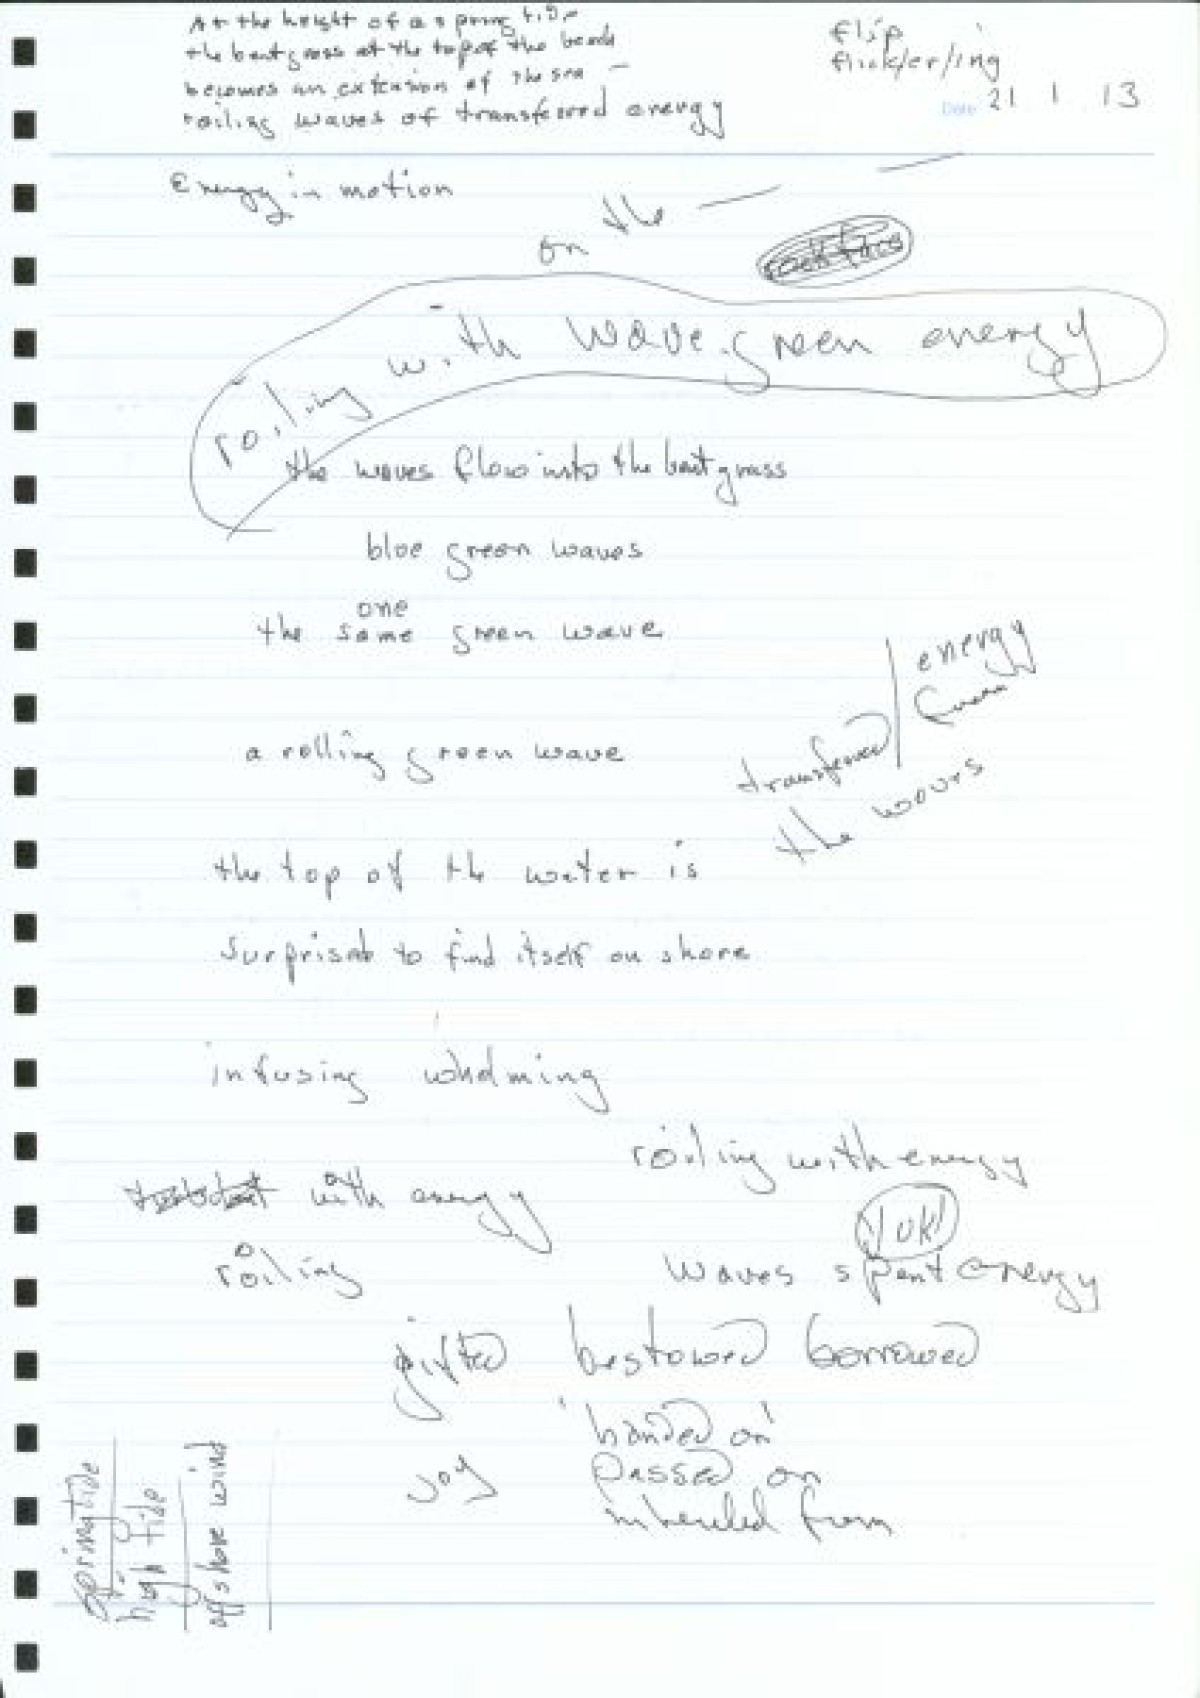 At the height of a spring tide
the bentgrass at the top of the beach
becomes an extension of the sea –
roiling waves of transferred energy
flip
flick/er/ing
Date 21 1 13
Energy in motion
on the
rock face
roiling with wave-green energy
the waves flow into the bentgrass
blue green waves
one
the same green wave
energy
transferred / from
the waves
a rolling green wave
the top of the water is
surprised to find itself on shore
infusing whelming
roiling with energy
with energy
YUK!
roiling
waves spent energy
gifted bestowed borrowed
'handed on'
joy
passed on
inherited from
spring tide
high tide
offshore wind